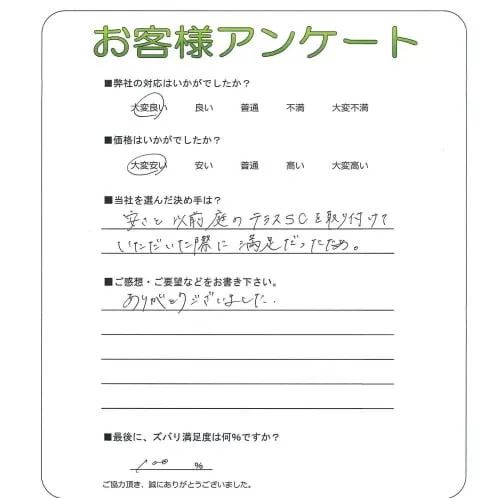 お客様アンケート
■弊社の対応はいかがでしたか？
大変良い 良い 普通 不満 大変不満
■価格はいかがでしたか？
大変安い 安い 普通 高い 大変高い
■当社を選んだ決め手は？
安さと以前庭のテラスSCを取り付けて
いただいた際に満足だったため。
■ご感想・ご要望などをお書き下さい。
ありがとうございました.
■最後に、ズバリ満足度は何%ですか？
100 %
ご協力頂き、誠にありがとうございました。